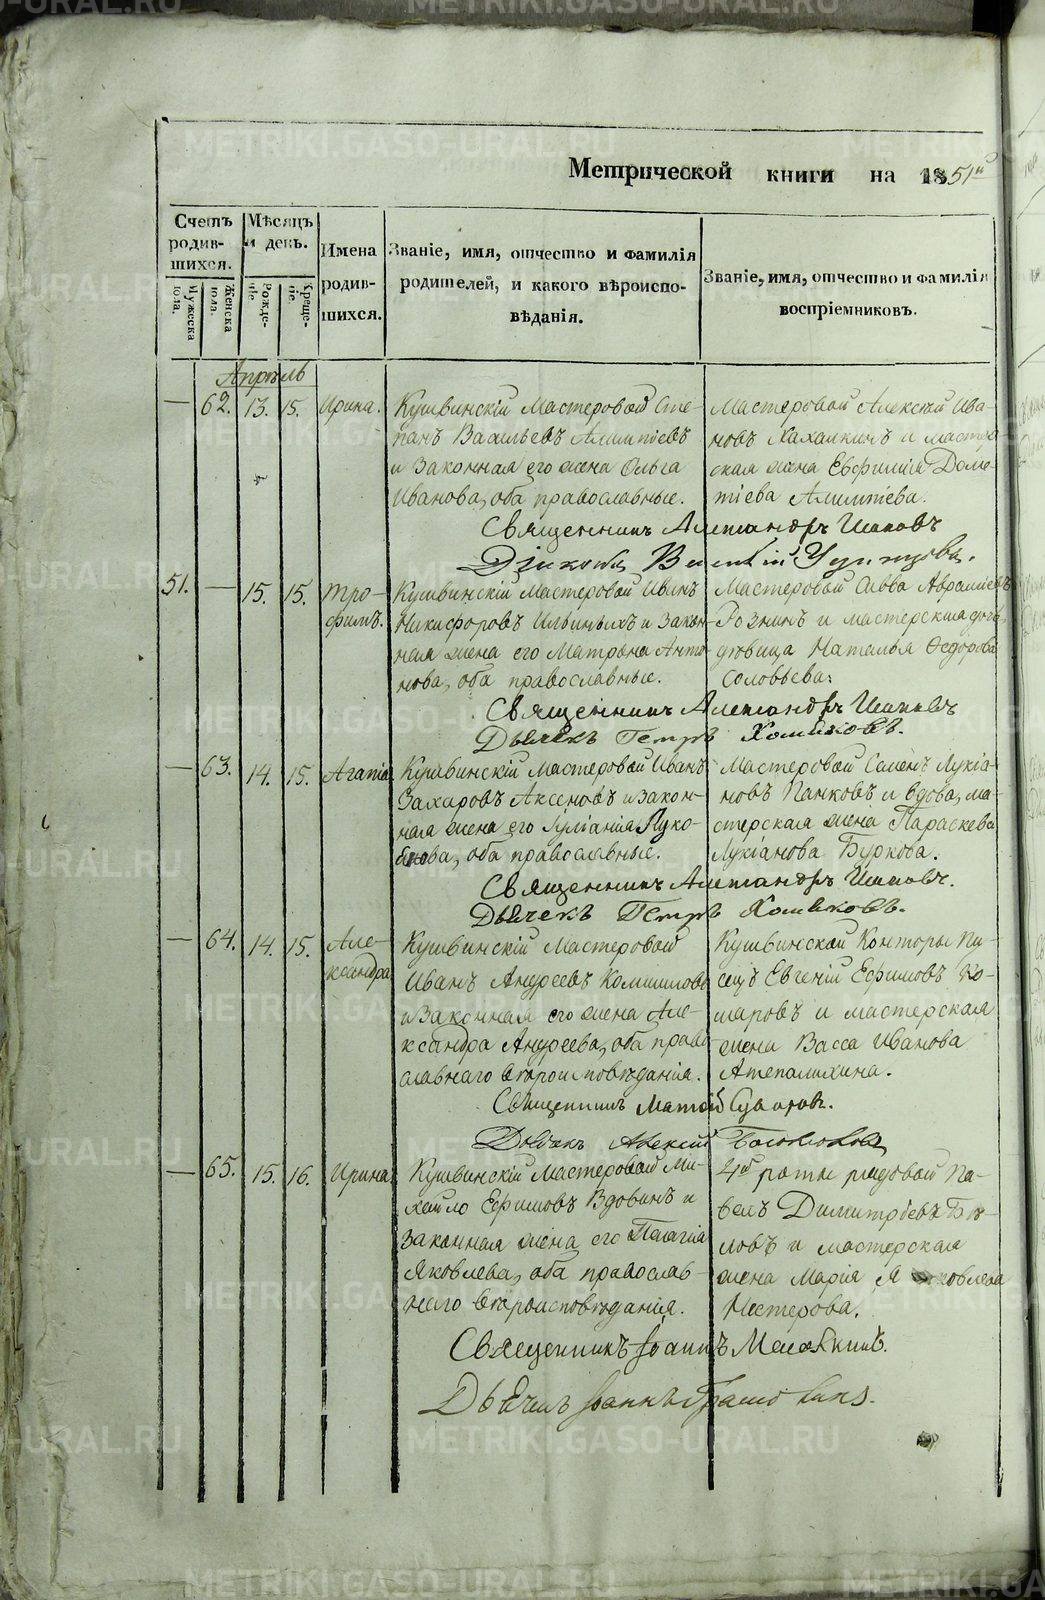 Метрической книги на 1851й
Счетъ родив-шихся.
Мужеска пола.
Женска пола.
Мѣсяцъ и день.
Рожде-ніе
Креще-ніе.
Имена родив-шихся.
Званіе, имя, отчество и фамилія
родителей, и какого вѣроиспо-
вѣданія.
Званіе, имя, отчество и фамилія
воспріемниковъ.
Апрѣль
— 62. 13. 15. Ирина.
Кушвинскій Мастеровой Сте-
панъ Васильевъ Алимпіевъ
и Законная его жена Ольга
Иванова, оба православные.
Мастеровой Алексѣй Ива-
новъ Хахалкинъ и мастер-
ская жена Евфимія Доме-
тіева Алимпіева.
Священникъ Александръ
51. — 15. 15. Тро-
фимъ.
Кушвинскій Мастеровой Иванъ
Никифоровъ Ильиныхъ и Закон-
ная жена его Матрона Анто-
нова, оба православные.
Мастеровой Савва Авраміевъ
и мастерская дочь
дѣвица Наталья Ѳедорова
Соловьева.
Священникъ Александръ
Дьячекъ Петръ Хомяковъ.
— 63. 14. 15. Агапія
Кушвинскій Мастеровой Иванъ
Захаровъ Аксеновъ и закон-
ная жена его Іуліанія
оба православные.
Мастеровой Семенъ Лукіа-
новъ Панковъ и вдова, ма-
стерская жена Параскева
Лукіанова Буркова.
Священникъ Александръ
Дьячекъ Петръ Хомяковъ.
— 64. 14. 15. Але-
ксандра
Кушвинскій Мастеровой
Иванъ Андреевъ
и Законная его жена Але-
ксандра Андреева, оба право-
славнаго вѣроисповѣданія.
Кушвинской Конторы Пи-
сецъ Евгеній Ефимовъ Ко-
маровъ и мастерская
жена Васса Иванова
Атепалихина.
Священникъ Матѳей Суворовъ.
Дьячекъ Алексій
— 65. 15. 16. Ирина
Кушвинскій Мастеровой Ми-
хайло Ефимовъ Вдовинъ и
законная жена его Пелагія
Яковлева, оба православ-
наго вѣроисповѣданія.
4й роты рядовой Па-
велъ Димитріевъ Бѣ-
ловъ и мастерская
жена Марія Яковлева
Нестерова.
Священникъ Іоаннъ
Дьячекъ Іоаннъ
METRIKI.GASO-URAL.RU